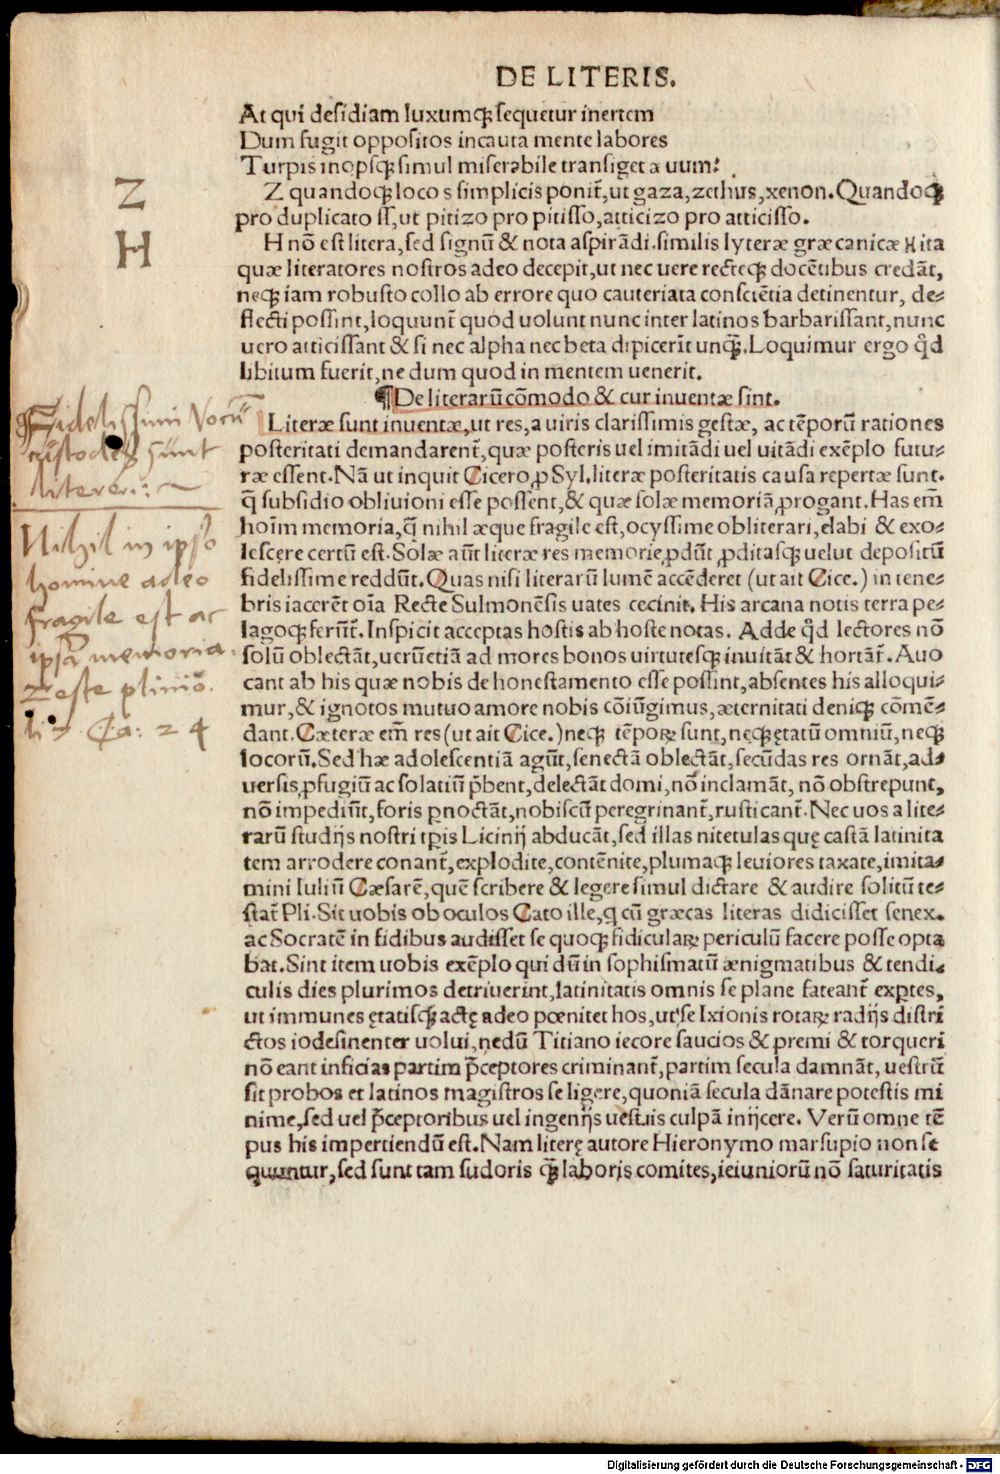 DE LITERIS.
At qui desidiam luxumq; sequetur inertem
Dum fugit oppositos incauta mente labores
Turpis inopsq; simul miserabile transiget æuum.
Z
Z quandoq; loco s simplicis ponit̃, ut gaza, zethus, xenon. Quandoq;
pro duplicato ss, ut pitizo pro pitisso, atticizo pro atticisso.
H
H nō est litera, sed signū & nota aspirādi. similis lyteræ græcanicæ Hita
quæ literatores nostros adeo decepit, ut nec uere recteq; docētibus credāt,
neq; iam robusto collo ab errore quo cauteriata consciētia detinentur, de-
flecti possint, loqunt̃ quod uolunt nunc inter latinos barbarissant, nunc
uero atticissant & si nec alpha nec beta dipicerīt unq̃. Loquimur ergo q̊d
libitum fuerit, ne dum quod in mentem uenerit.
¶De literarū cōmodo & cur inuentæ sint.
Fidelissimi Vocū
custodes sunt
litere:~
Literæ sunt inuentæ, ut res, a uiris clarissimis gestæ, ac tēporū rationes
posteritati demandarent̃, quæ posteris uel imitādi uel uitādi exēplo futu-
ræ essent. Nā ut inquit Cicero, ꝓ Syl, literæ posteritatis causa repertæ sunt.
q̃ subsidio obliuioni esse possent, & quæ solæ memoriā ꝓrogant. Has em̃
hoīm memoria, q̃ nihil æque fragile est, ocyssime obliterari, elabi & exo-
lescere certū est. Solæ aūt literæ res memorie ꝓdūt, ꝓditasq; uelut depositū
fidelissime reddūt. Quas nisi literarū lumē accēderet (ut ait Cice.) in tene-
bris iacerēt oīa Recte Sulmonēsis uates cecinit. His arcana notis terra pe-
lagoq; ferūt̃. Inspicit acceptas hostis ab hoste notas. Adde q̊d lectores nō
solū oblectāt, uerūetiā ad mores bonos uirtutesq; inuitāt & hortāt̃. Auo
cant ab his quæ nobis dehonestamento esse possint, absentes his alloqui-
mur, & ignotos mutuo amore nobis cōiūgimus, æternitati deniq; cōmē-
dant. Cæteræ em̃ res (ut ait Cice.) neq; tēporꝝ sunt, neq; ętatū omniū, neq;
locorū. Sed hæ adolescentiā agūt, senectā oblectāt, secūdas res ornāt, ad-
uersis ꝓfugiū ac solatiū p̃bent, delectāt domi, nō inclamāt, nō obstrepunt,
nō impediūt, foris ꝑnoctāt, nobiscū peregrinant̃, rusticant̃. Nec uos a lite-
rarū studijs nostri tp̄is Licinij abducāt, sed illas nitetulas quę castā latinita
tem arrodere conant̃, explodite, contēnite, plumaq; leuiores taxate, imita-
mini Iuliū Cæsarē, quē scribere & legere simul dictare & audire solitū te-
stat̃ Pli. Sit uobis ob oculos Cato ille, q cū græcas literas didicisset senex.
ac Socratē in fidibus audisset se quoq; fidicularꝝ periculū facere posse opta
bat. Sint item uobis exēplo qui dū in sophismatū ænigmatibus & tendi-
culis dies plurimos detriuerint, latinitatis omnis se plane fateant̃ exꝑtes,
ut immunes ętatisq; actę adeo pœnitet hos, ut se Ixionis rotarꝝ radijs distri
ctos iodesinenter uolui, nedū Titiano iecore saucios & premi & torqueri
nō eant inficias partim p̃ceptores criminant̃, partim secula damnāt, uestrū
sit probos et latinos magistros seligere, quoniā secula dānare potestis mi
nime, sed uel p̃ceptoribus uel ingenijs uestris culpā inijcere. Verū omne tē
pus his impertiendū est. Nam literę autore Hieronymo marsupio non se
quuntur, sed sunt tam sudoris q̃ laboris comites, ieiuniorū nō saturitatis
Nihil in ipso
homine adeo
fragile est ac
ipsa memoria
teste plinio.
li 7 Ca: 24
Digitalisierung gefördert durch die Deutsche Forschungsgemeinschaft - DFG